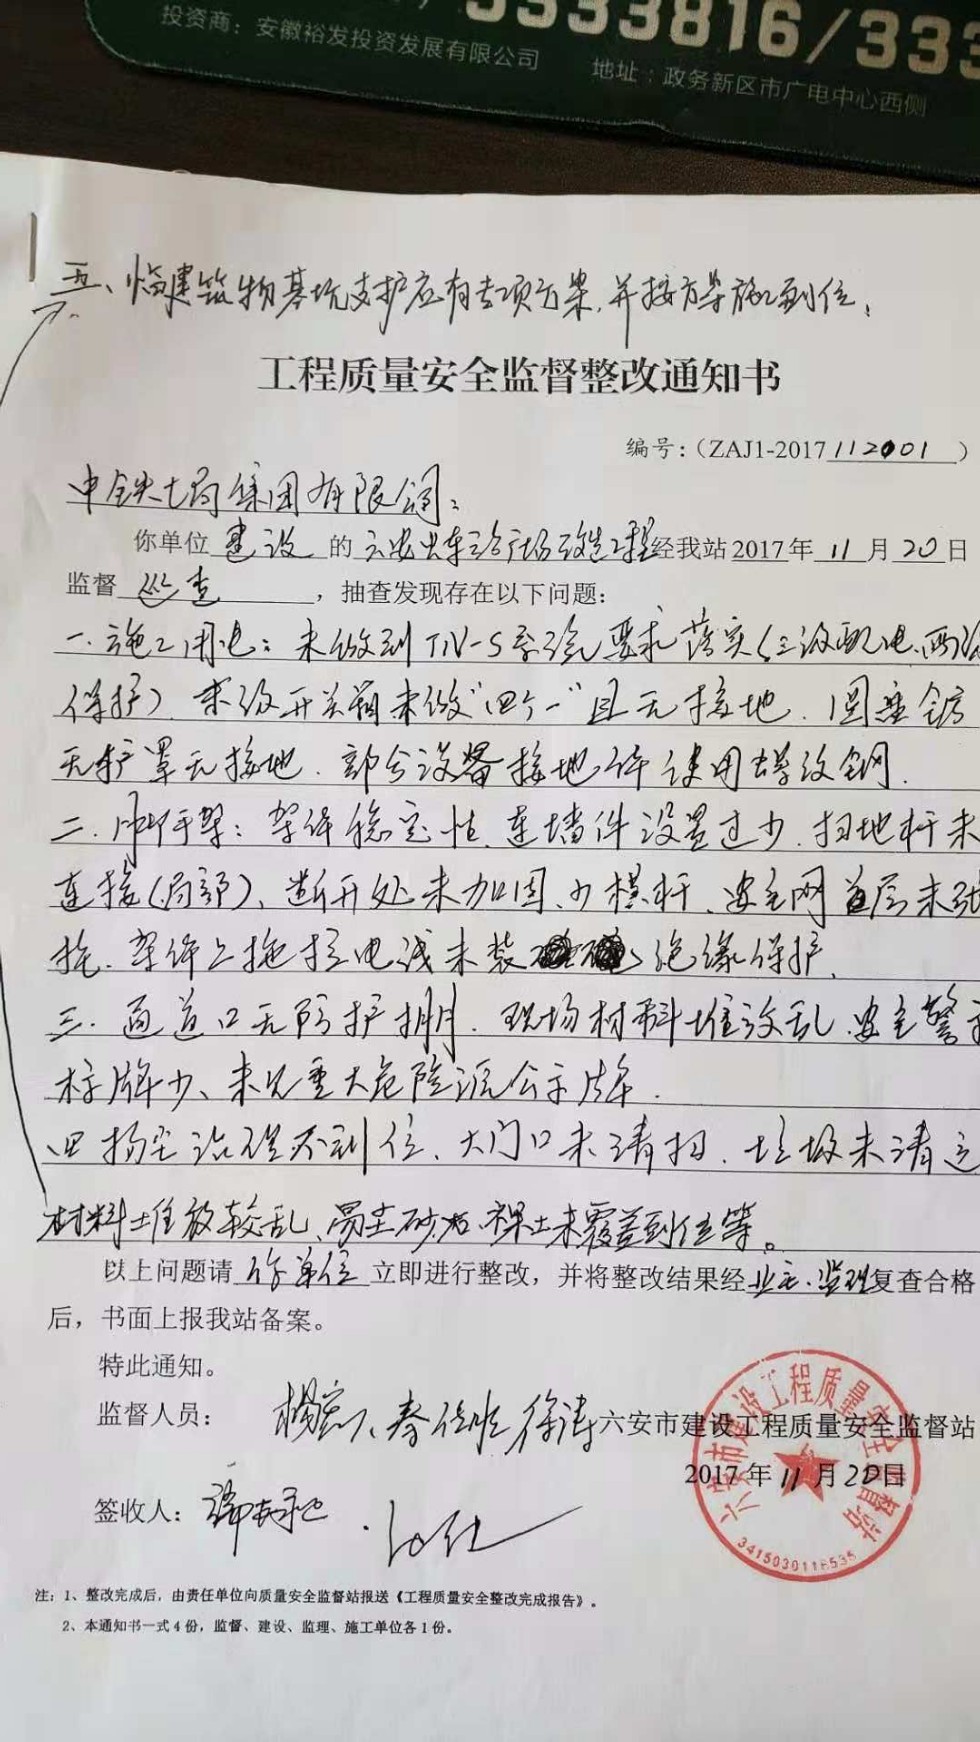 3333816/333
投资商：安徽裕发投资发展有限公司
地址：政务新区市广电中心西侧
五、临建筑物基坑支护应有专项方案，并按方案施工到位，
工程质量安全监督整改通知书
编号：（ZAJ1-2017112001）
中铁七局集团有限公司：
你单位建设的六安火车站广场改造工程经我站2017年11月20日
监督巡查，抽查发现存在以下问题：
一.施工用电：未做到TN-S系统要求落实(三级配电、两级
保护)、末级开关箱未做"四个一"且无接地.圆盘锯
无护罩无接地.部分设备接地体使用螺纹钢.
二.脚手架：架体稳定性、连墙件设置过少.扫地杆未
连接(局部)、断开处未加固、少横杆、安全网首层未张
拖.架体上拖拉电线未装绝缘保护.
三.通道口无防护棚.现场材料堆放乱.安全警示
标牌少、未见重大危险源公示牌.
四扬尘治理不到位、大门口未清扫.垃圾未清运
材料堆放较乱、易尘砂石、裸土未覆盖到位等。
以上问题请你单位立即进行整改，并将整改结果经业主.监理复查合格
后，书面上报我站备案。
特此通知。
监督人员： 徐涛 六安市建设工程质量安全监督站
2017年11月20日
签收人：
六安市建设工程质量安全监督站
注：1、整改完成后，由责任单位向质量安全监督站报送《工程质量安全整改完成报告》。
2、本通知书一式4份，监督、建设、监理、施工单位各1份。